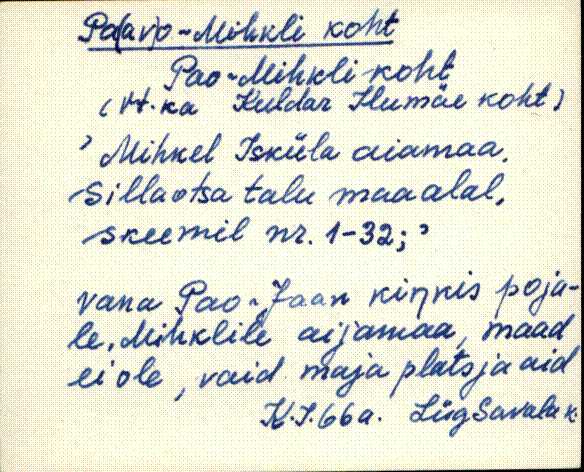 Pa(av)o-Mihkli koht
Pao-Mihkli koht
(Vt. ka Kuldar Ilumäe koht)
' Mihkel Isküla aiamaa,
Sillaotsa talu maaalal,
skeemil nr. 1-32; '
vana Pao-Jaan kiŋkis poja-
le, Mihklile aijamaa, maad
ei ole, vaid maja plats ja aid
K.I. 66a. Lüg Savala k.